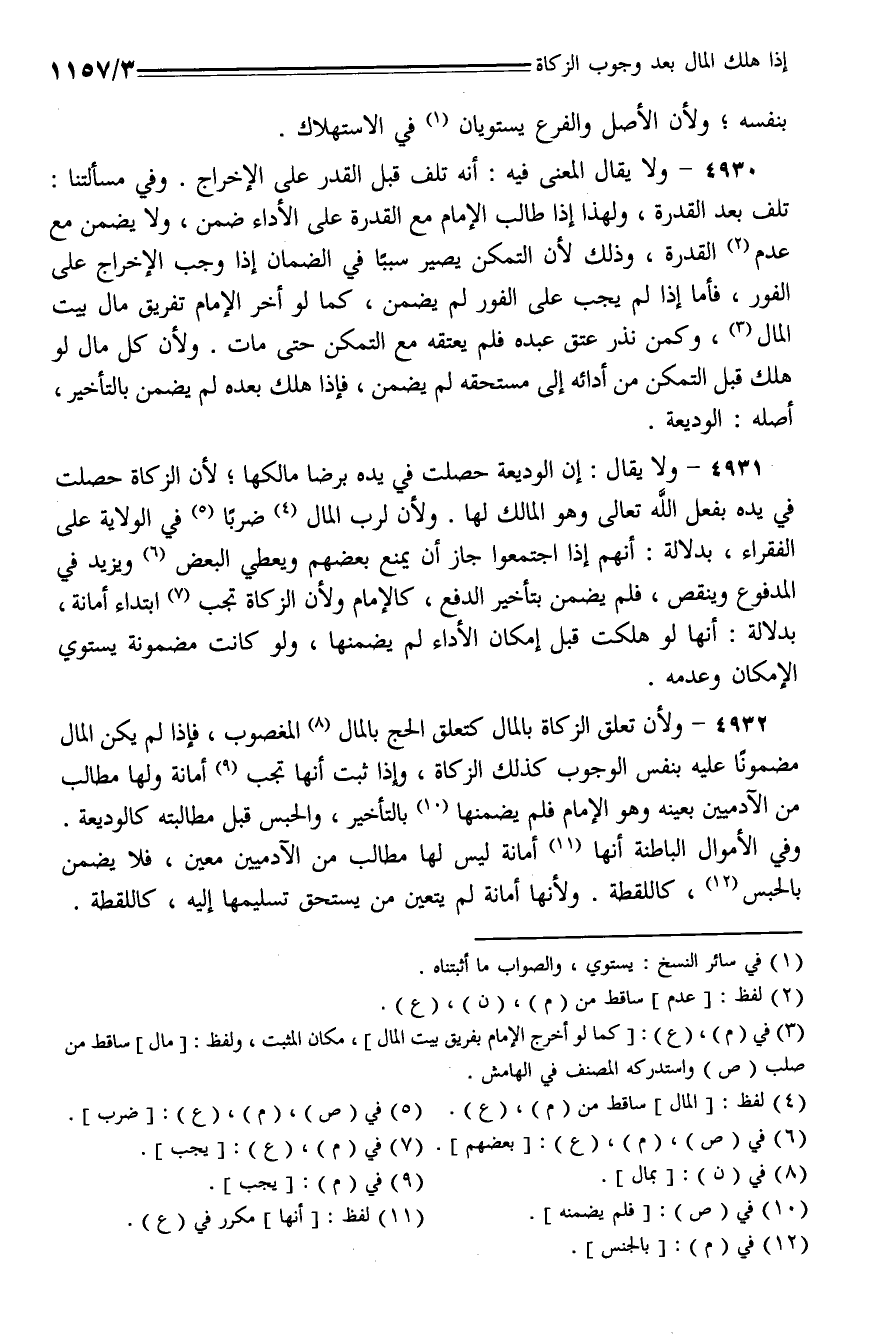 إذا هلك المال بعد وجوب الزكاة ١١٥٧/٣
بنفسه ؛ ولأن الأصل والفرع يستويان (١) في الاستهلاك .
٤٩٣٠ - ولا يقال المعنى فيه : أنه تلف قبل القدر على الإخراج . وفي مسألتنا :
تلف بعد القدرة ، ولهذا إذا طالب الإمام مع القدرة على الأداء ضمن ، ولا يضمن مع
عدم (٢) القدرة ، وذلك لأن التمكن يصير سببًا في الضمان إذا وجب الإخراج على
الفور ، فأما إذا لم يجب على الفور لم يضمن ، كما لو أخر الإمام تفريق مال بيت
المال (٣) ، وكمن نذر عتق عبده فلم يعتقه مع التمكن حتى مات . ولأن كل مال لو
هلك قبل التمكن من أدائه إلى مستحقه لم يضمن ، فإذا هلك بعده لم يضمن بالتأخير ،
أصله : الوديعة .
٤٩٣١ - ولا يقال : إن الوديعة حصلت في يده برضا مالكها ؛ لأن الزكاة حصلت
في يده بفعل اللَّه تعالى وهو المالك لها . ولأن لرب المال (٤) ضربًا (٥) في الولاية على
الفقراء ، بدلالة : أنهم إذا اجتمعوا جاز أن يمنع بعضهم ويعطي البعض (٦) ويزيد في
المدفوع وينقص ، فلم يضمن بتأخير الدفع ، كالإمام ولأن الزكاة تجب (٧) ابتداء أمانة ،
بدلالة : أنها لو هلكت قبل إمكان الأداء لم يضمنها ، ولو كانت مضمونة يستوي
الإمكان وعدمه .
٤٩٣٢ - ولأن تعلق الزكاة بالمال كتعلق الحج بالمال (٨) المغصوب ، فإذا لم يكن المال
مضمونًا عليه بنفس الوجوب كذلك الزكاة ، وإذا ثبت أنها تجب (٩) أمانة ولها مطالب
من الآدميين بعينه وهو الإمام فلم يضمنها (١٠) بالتأخير ، والحبس قبل مطالبته كالوديعة .
وفي الأموال الباطنة أنها (١١) أمانة ليس لها مطالب من الآدميين معين ، فلا يضمن
بالحبس (١٢) ، كاللقطة . ولأنها أمانة لم يتعين من يستحق تسليمها إليه ، كاللقطة .
(١) في سائر النسخ : يستوي ، والصواب ما أثبتناه .
(٢) لفظ : [ عدم ] ساقط من ( م ) ، ( ن ) ، ( ع ) .
(٣) في ( م ) ، ( ع ) : [ كما لو أخرج الإمام بفريق بيت المال ] ، مكان المثبت ، ولفظ : [ مال ] ساقط من
صلب ( ص ) واستدركه المصنف في الهامش .
(٤) لفظ : [ المال ] ساقط من ( م ) ، ( ع ) . (٥) في ( ص ) ، ( م ) ، ( ع ) : [ ضرب ] .
(٦) في ( ص ) ، ( م ) ، ( ع ) : [ بعضهم ] . (٧) في ( م ) ، ( ع ) : [ يجب ] .
(٨) في ( ن ) : [ بمال ] . (٩) في ( م ) : [ يجب ] .
(١٠) في ( ص ) : [ فلم يضمنه ] . (١١) لفظ : [ أنها ] مكرر في ( ع ) .
(١٢) في ( م ) : [ بالجنس ] .